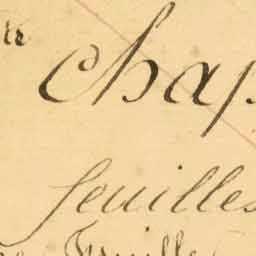 chap
feuilles
feuille